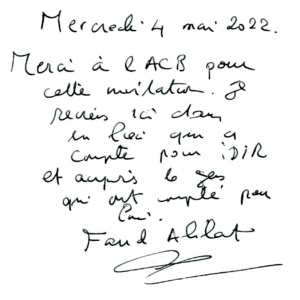 Mercredi 4 mai 2022.
Merci à l'ACB pour
cette invitation. Je
reviens ici dans
un lieu qui a
compté pour iDiR
et auprès le gens
qui ont compté pour
lui.
Farid Alilat